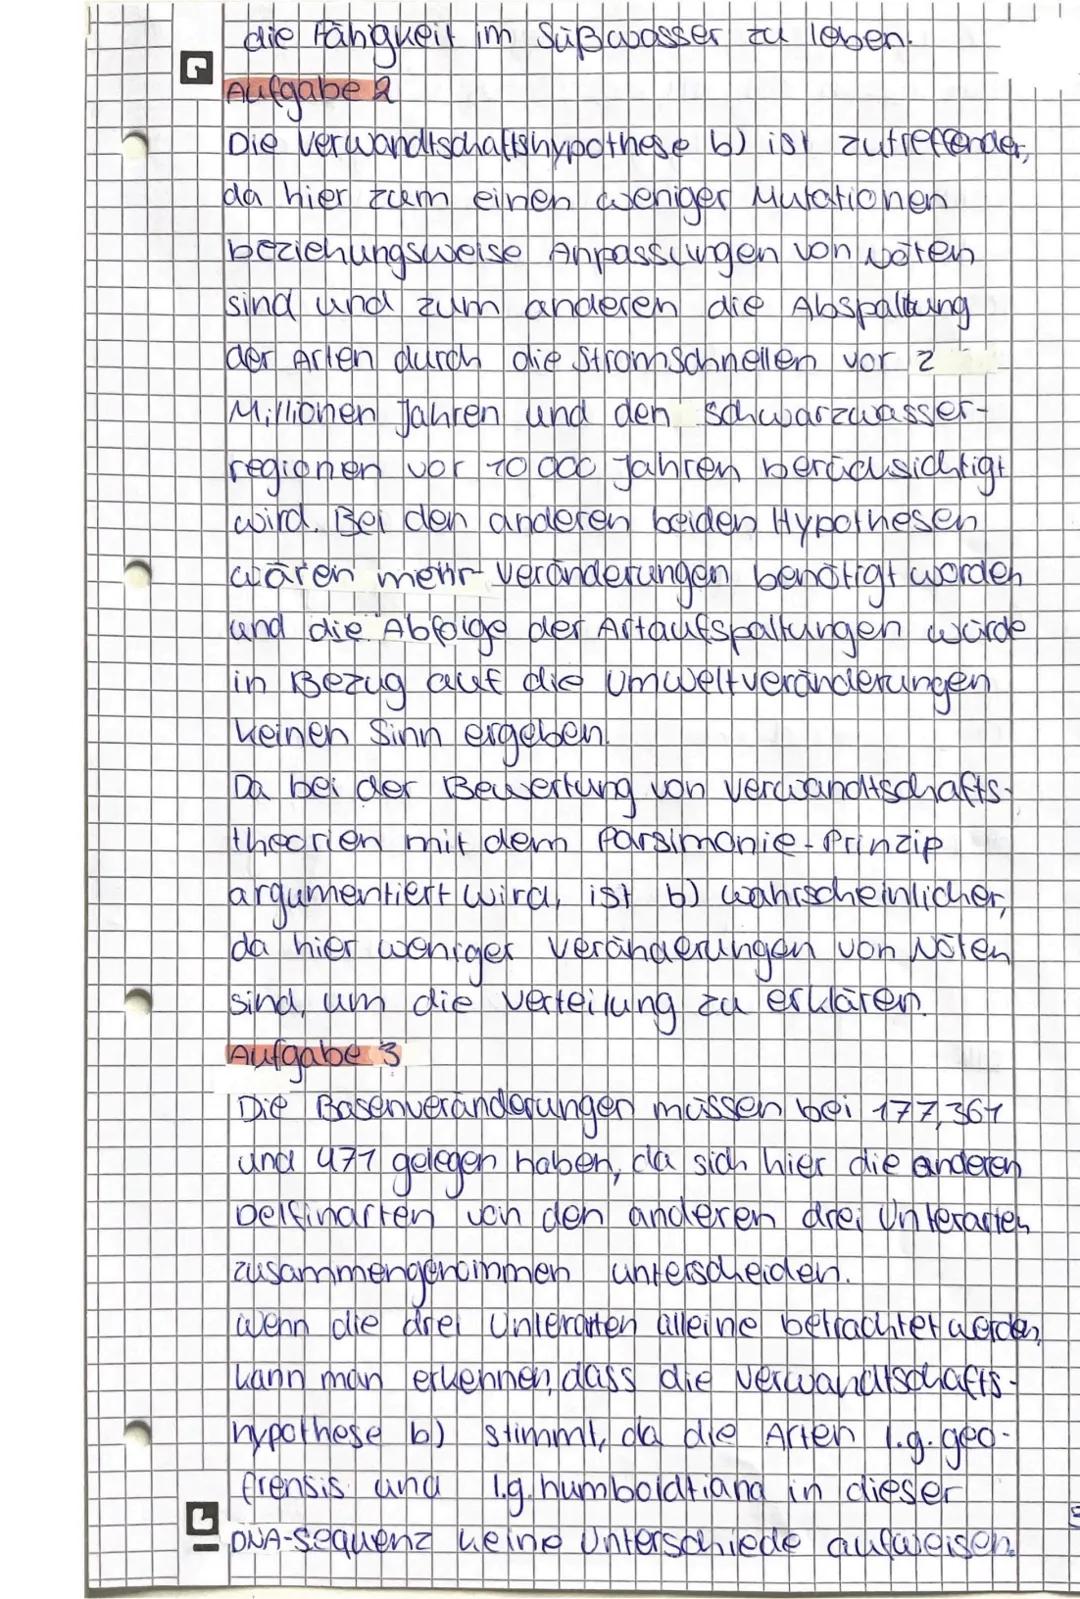 die Fähigkeit im Süßwasser zu leben.
Aufgabe 2
Die Verwandtschaftshypothese b) ist zutreffender,
da hier zum einen weniger Mutationen
beziehungsweise Anpassungen von nöten
sind und zum anderen die Abspaltung
der Arten durch die Stromschnellen vor 2
Millionen Jahren und den Schwarzwasser-
regionen vor 10 000 Jahren berücksichtigt
wird. Bei den anderen beiden Hypothesen
wären mehr Veränderungen benötigt worden
und die Abfolge der Artaufspaltungen würde
in Bezug auf die Umweltveränderungen
keinen Sinn ergeben.
Da bei der Bewertung von Verwandtschafts-
theorien mit dem Parsimonie-Prinzip
argumentiert wird, ist b) wahrscheinlicher,
da hier weniger Veränderungen von Nöten
sind, um die Verteilung zu erklären.
Aufgabe 3
Die Basenveränderungen müssen bei 177, 361
und 471 gelegen haben, da sich hier die anderen
Delfinarten von den anderen drei Unterarten
zusammengenommen unterscheiden.
Wenn die drei Unterarten alleine betrachtet werden,
kann man erkennen, dass die Verwandtschafts-
hypothese b) stimmt, da die Arten I.g. geo-
frensis und I.g. humboldtiana in dieser
DNA-Sequenz keine Unterschiede aufweisen.